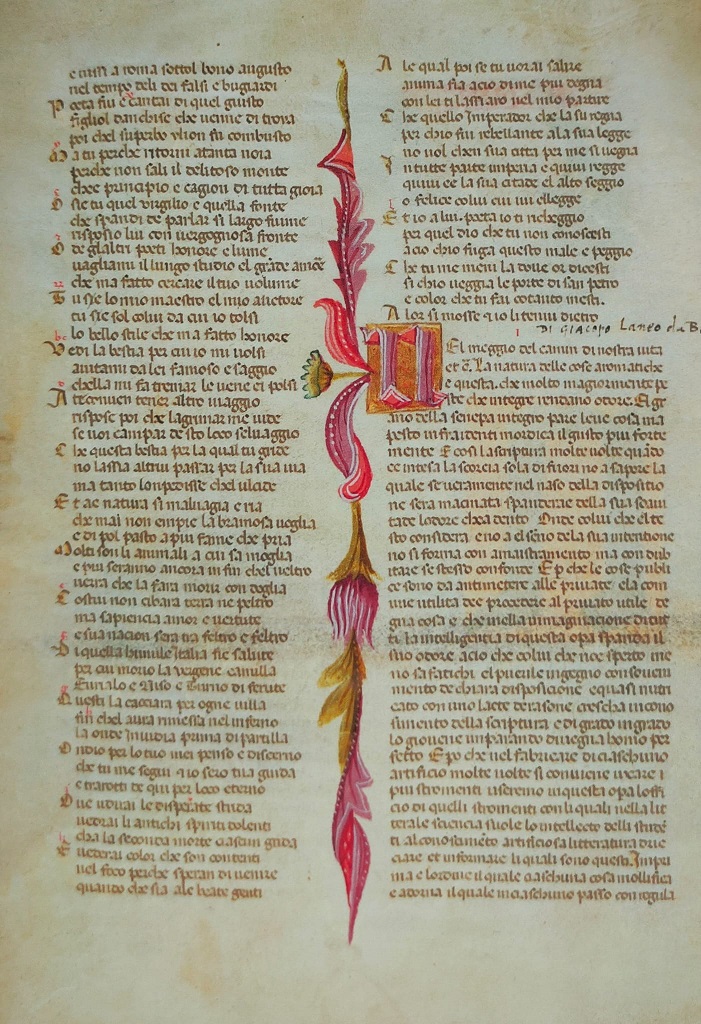 e vissi a roma sottol bono augusto
nel tempo deli dei falsi e bugiardi
Poeta fui e cantai di quel giusto
figliol danchise che venne di troia
poi chel superbo ylion fu combusto
Ma tu perche ritorni atanta noia
perche non sali il delitoso monte
chee principio e cagion di tutta gioia
O sie tu quel virgilio e quella fonte
che spandi de parlar si largo fiume
risposio lui con vergognosa fronte
O de glaltri poeti honore e lume
vagliami il lungo studio el grāde amōe
che ma fatto cercare il tuo volume
Tu sie lo mio maestro el mio autore
tu sie sol colui da cui io tolsi
lo bello stile che ma fatto honore
Vedi la bestia per cui io mi volsi
aiutami da lei famoso e saggio
chella mi fa tremar le vene ei polsi
A te convien tener altro viaggio
rispose poi che lagrimar me vide
se voi campar desto loco selvaggio
Che questa bestia per la qual tu gride
no lassa altrui passar per la sua via
ma tanto lompedisse chel ulcide
Et ae natura si malvagia e ria
che mai non empie la bramosa voglia
e di pol pasto a piu fame che pria
Molti son li animali a cui sa moglia
e piu seranno ancora in fin chel veltro
verra che la fara morir con doglia
Costui non cibara terra ne peltro
ma sapiencia amor e vertute
e sua nacion sera tra feltro e feltro
Di quella humile italia fie salute
per cui morio la vergene camilla
Eurialo e Niso e Turno di ferute
Questi la cacciara per ogne villa
fin chel aura rimessa nel inferno
la onde invidia prima dipartilla
Ondio per lo tuo mei penso e discerno
che tu me segui 7 io sero tua guida
e trarotti de qui per loco eterno
Ove udirai le disperate strida
vedrai li antichi spiriti dolenti
cha la seconda morte ciascun grida
E vederai color che son contenti
nel foco perche speran di venire
quando che sia ale beate genti
A le qual poi se tu vorai salire
anima fia acio di me piu degna
con lei ti lassaro nel mio partire
Che quello Imperador che la su regna
per chio fui rebellante ala sua legge
no vol chen sua citta per me si vegna
In tutte parte impera e quivi regge
quivi ee la sua citade el alto seggio
o felice colui cui ivi ellegge
Et io a lui. poeta io ti richeggio
per quel dio che tu non conoscesti
acio chio fuga questo male e peggio
Che tu me meni la dove or dicesti
si chio veggia le porte di san pietro
e color che tu fai cotanto mesti.
Alor si mosse 7 io li tenni dietro
DI GIACOPO Laneo da B
NEl meggio del camin di nostra vita
et c̄. La natura delle cose aromatiche
e questa. che molto magiormente pe
ste che integre rendano odore. El gr
ano della senepa integro pare leve cosa ma
pesto infra i denti mordica il gusto piu forte
mente. E cosi la scriptura molte volte quādo
ee intesa la scorcia sola di fuori no a sapore la
quale se veramente nel naso della dispositio
ne sera macinata spanderae della sua soavi
tade lodore chea dentro. Onde colui che el te
sto considera. e no a el seno della sua intentione
no si forma con amaistramento ma con dub
itare se stesso confonde. E p che le cose publi
ce sono da antimetere alle private. e la com
une utilita dee procedere al privato utile. de
gna cosa e. che nella immaginacione di tut
ti. la intelligentia di questa opa spanda il
suo odore. acio che colui che noe sperto me
no sa fatichi. el puerile ingegno con sovieni
mento de chiara disposicione. e quasi nutri
cato con uno lacte de rasone cresca in cono
sumento della scriptura. e di grado in grado
lo giovene imparando divegna homo per
fetto. E p o che nel fabricare di ciaschuno
artificio molte volte si conviene uxare i
piu stromenti. useremo in questa opa loffi
cio di quelli stromenti con li quali nella lit
terale sciencia suole lo intellecto delli studē
ti al conosamēto artificioso litteratura dru
ciare et informare. li quali sono questi. Impri
ma e lordine il quale ciaschuna cosa mollifica
e adorna. il quale in ciaschuno passo con regula